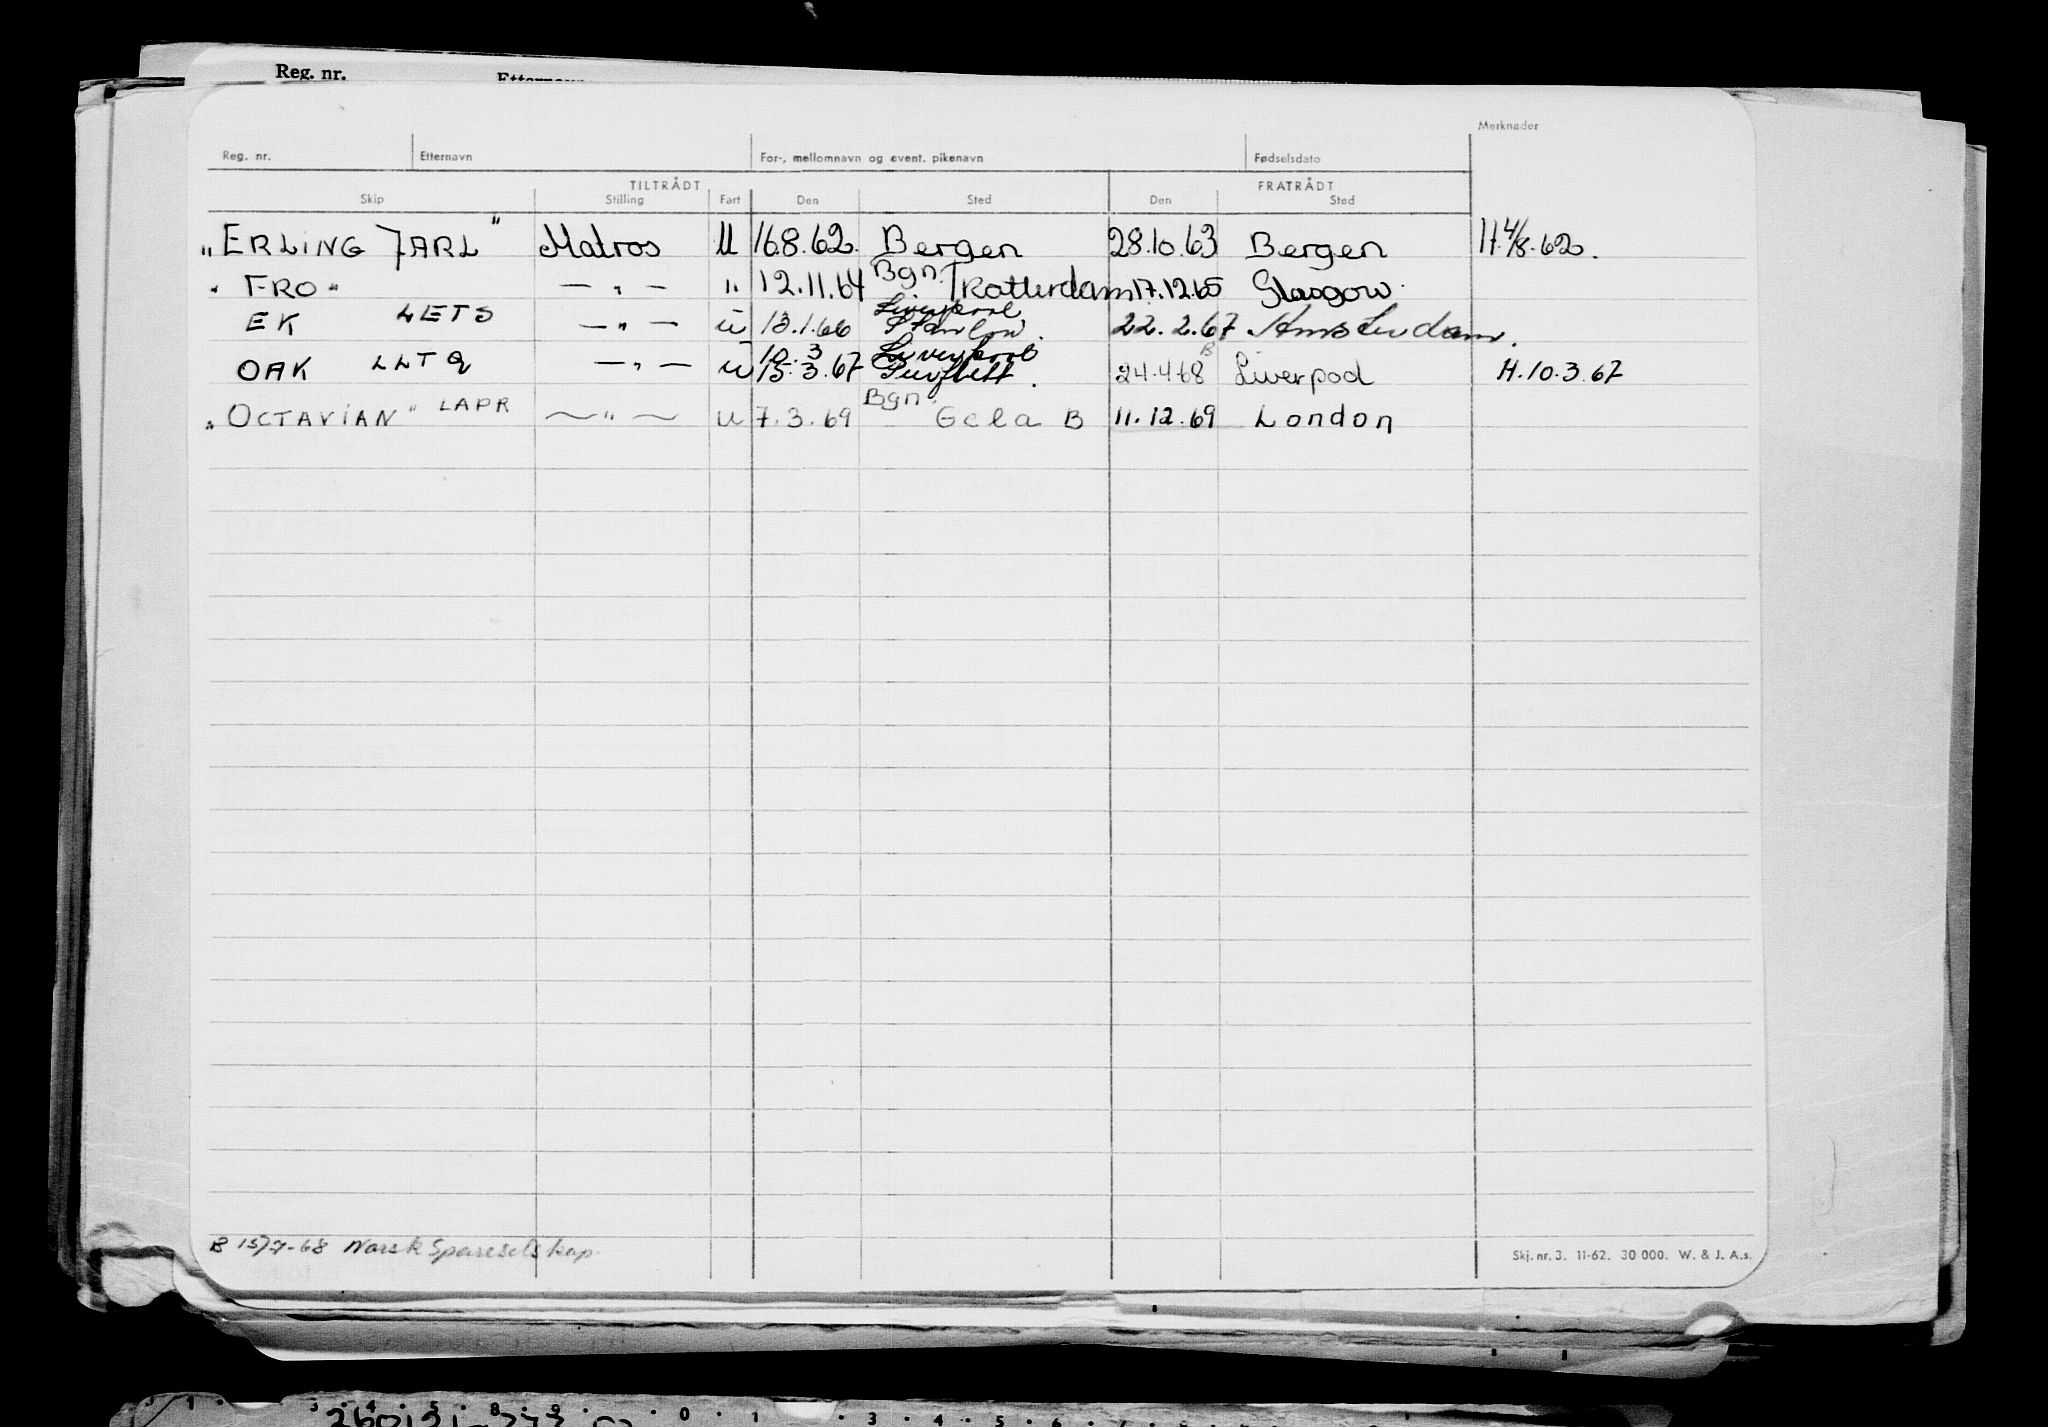 Reg. nr.
Merknader
Reg. nr. Etternavn For-, mellomnavn og event. pikenavn Fødselsdato
TILTRÅDT FRATRÅDT
Skip Stilling Fart Den Sted Den Sted
„ERLING JARL" Matros U 16.8.62. Bergen 28.10.63 Bergen H.4/8.62.
" FRO " — " — " 12.11.64 Bgn. Rotterdam 17.12.65 Glasgow.
Liverpool
EK LETS — " — U 13.1.66 Stanlow. 22.2.67 Amsterdam.
10.3 Liverpool B
OAK LLTQ — " — U 15.3.67 Purfleet. 24.4.68 Liverpool H.10.3.67
Bgn.
„OCTAVIAN" LAPR — " — U 7.3.69 Gela B 11.12.69 London
B 15/7-68 Norsk Spareselskap.
Skj. nr. 3. 11-62. 30 000. W. & J. A.s.